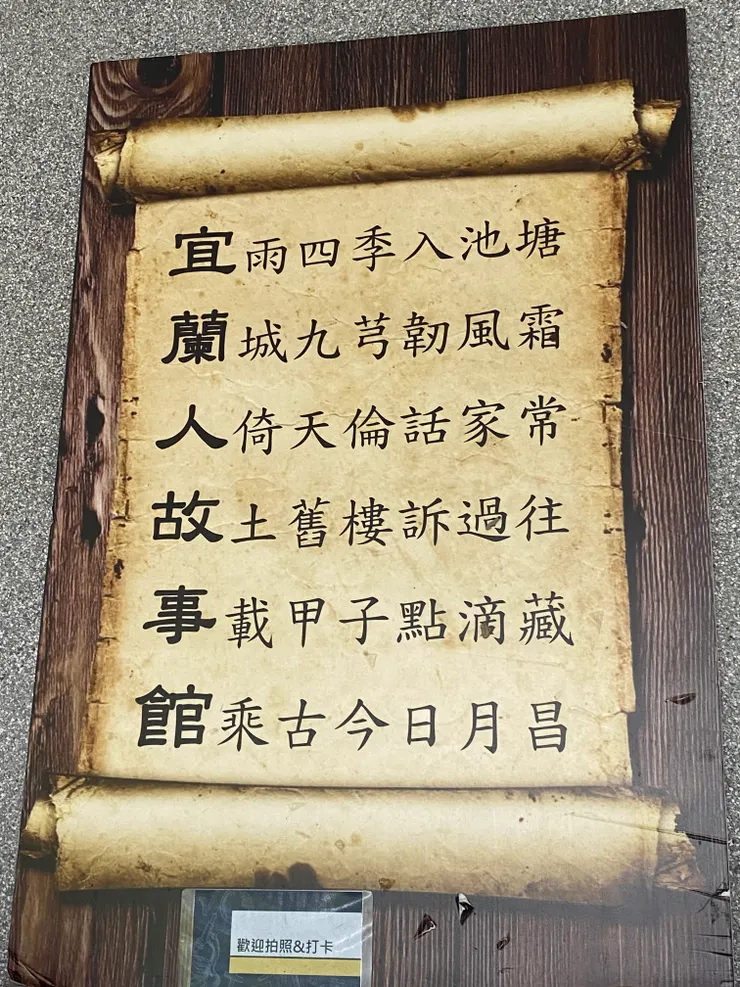 宜雨四季入池塘
蘭城九芎韌風霜
人倚天倫話家常
故土舊樓訴過往
事載甲子點滴藏
館乘古今日月昌
歡迎拍照&打卡